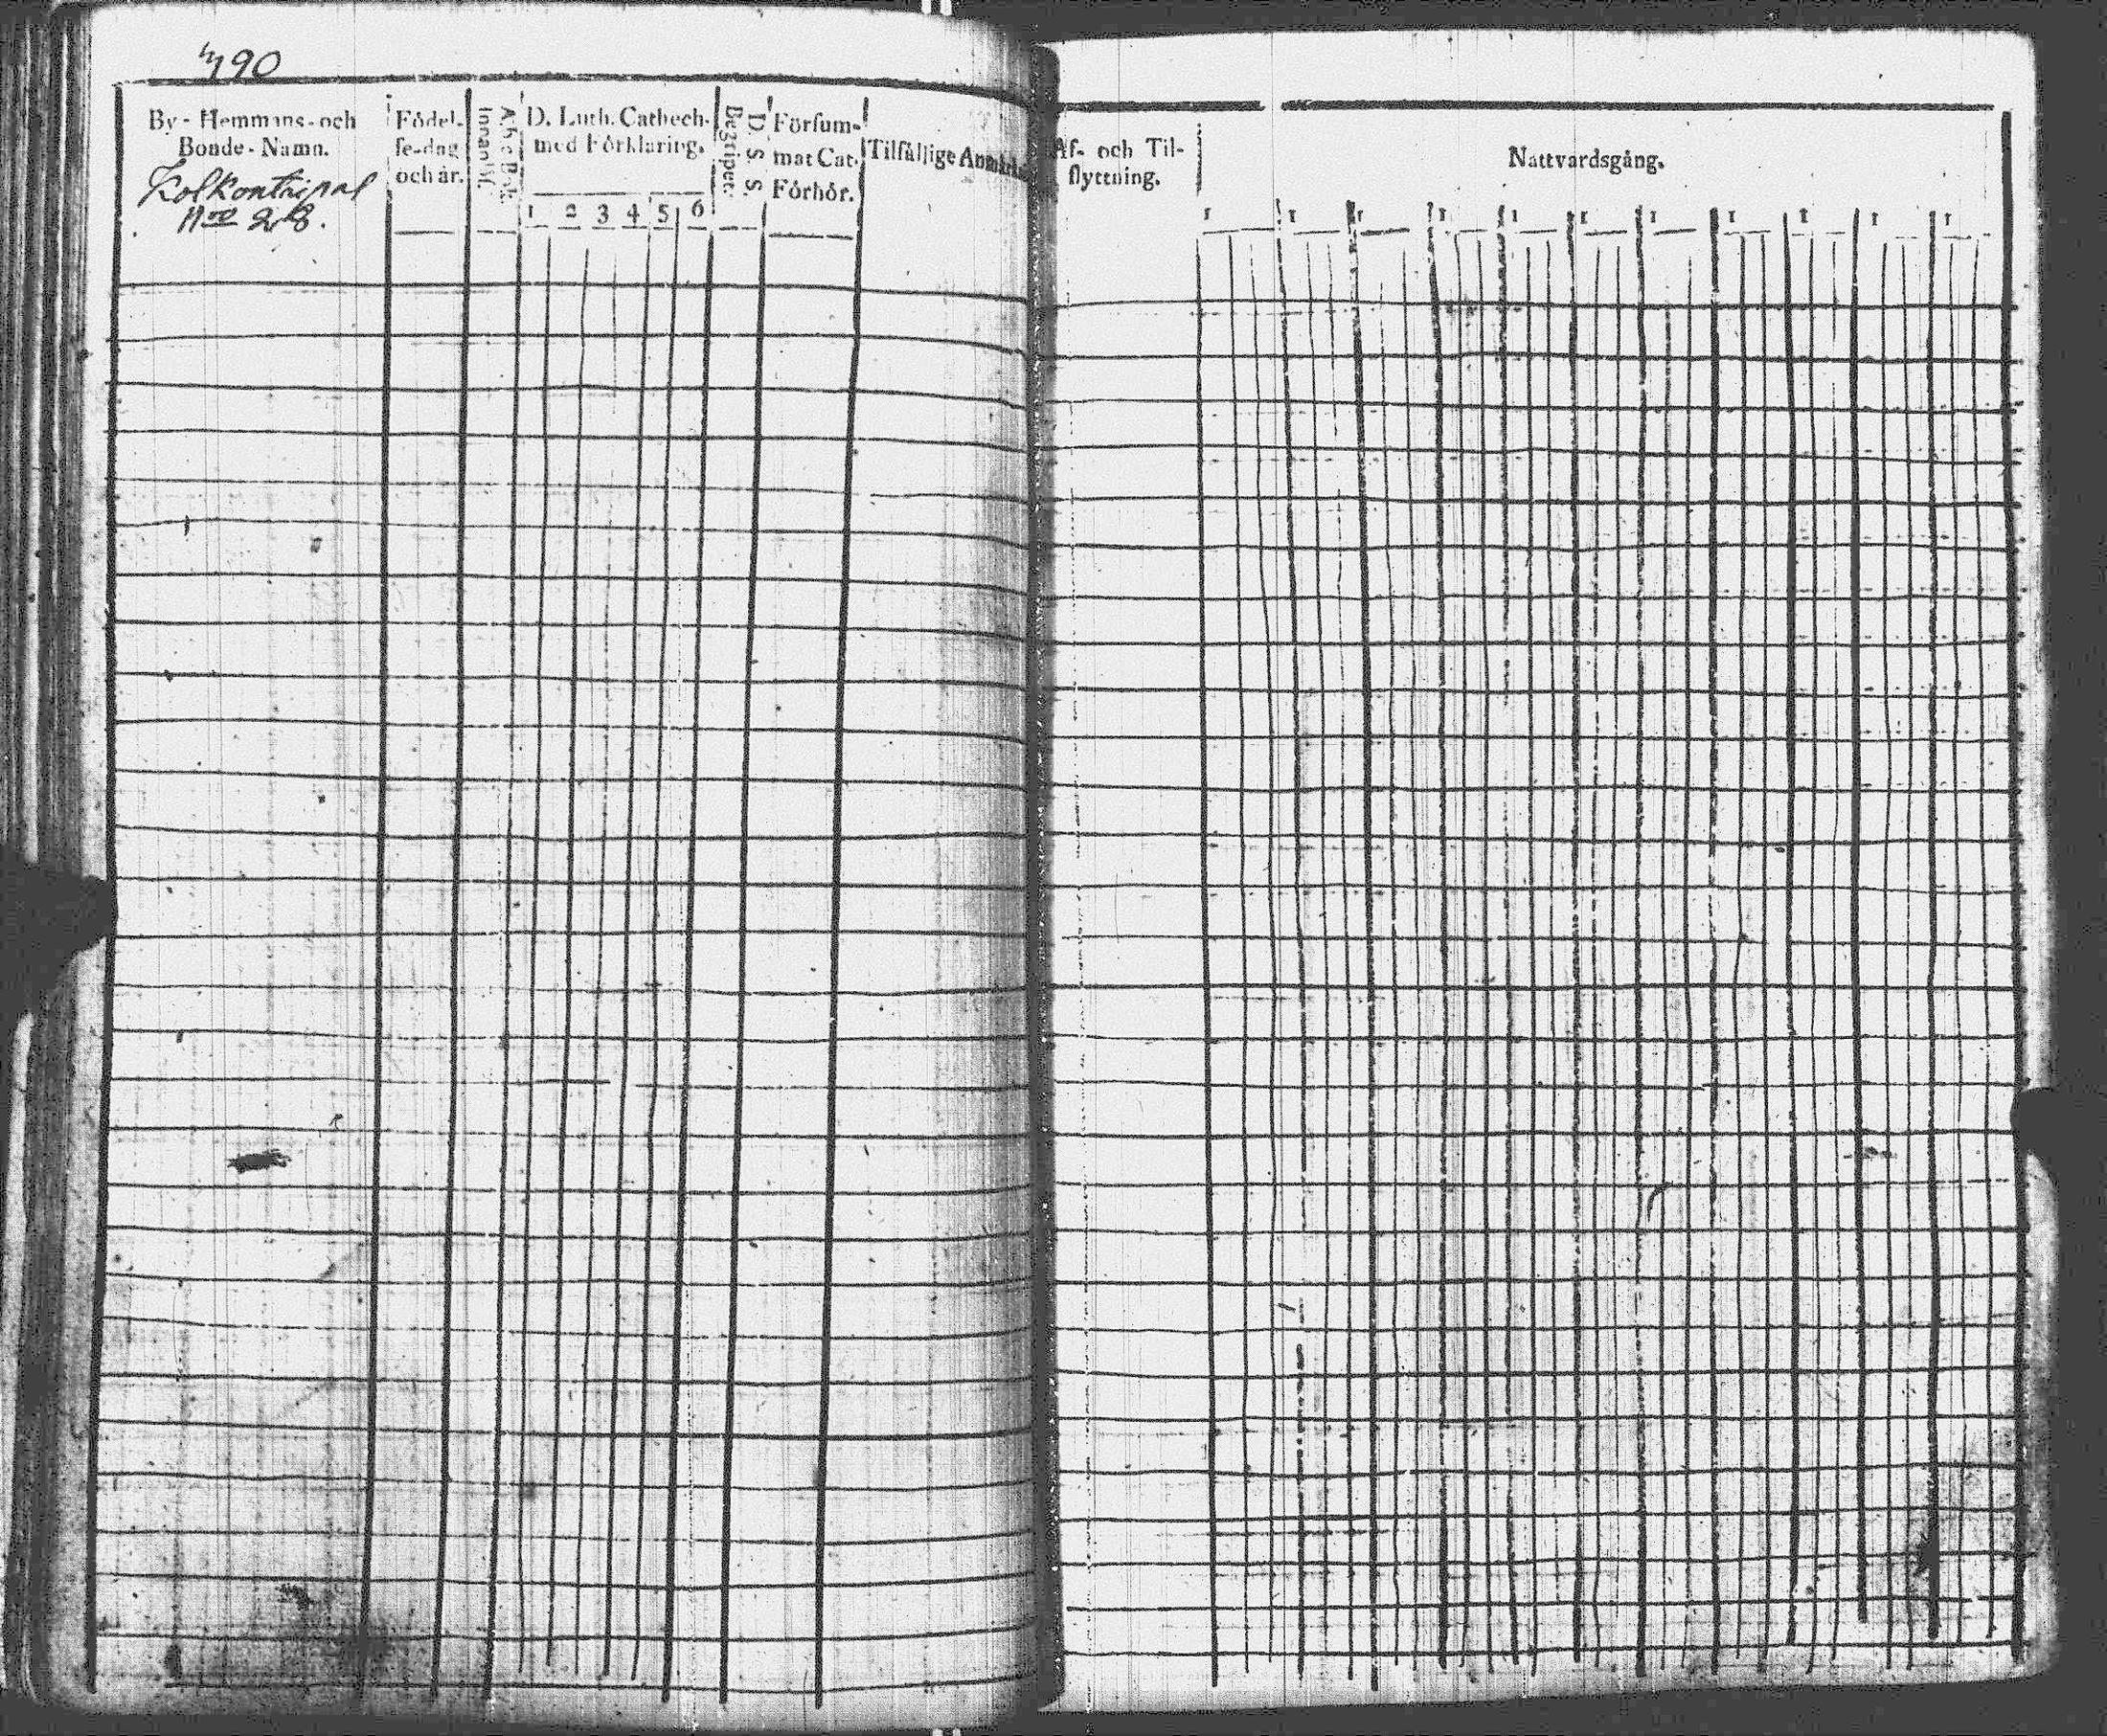 490
By- Hemmans- och
Bonde- Namn.
Kolkontaipal
N:o 28.
Födel-
se-dag
och år.
Innantil.
A.b.c. Bok.
D. Luth. Cathech-
med Förklaring.
1 2 3 4 5 6
D. S. S.
Begripet.
Försum-
mat Cat.
Förhör.
Tilfällige Anmärkn
Af- och Til-
flyttning.
Nattvardsgång.
1 1 1 1 1 1 1 1 1 1 1